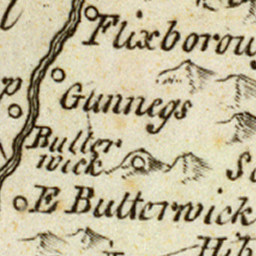 Flixborou
p
Gunnegs
Butter
wick
E Butterwick